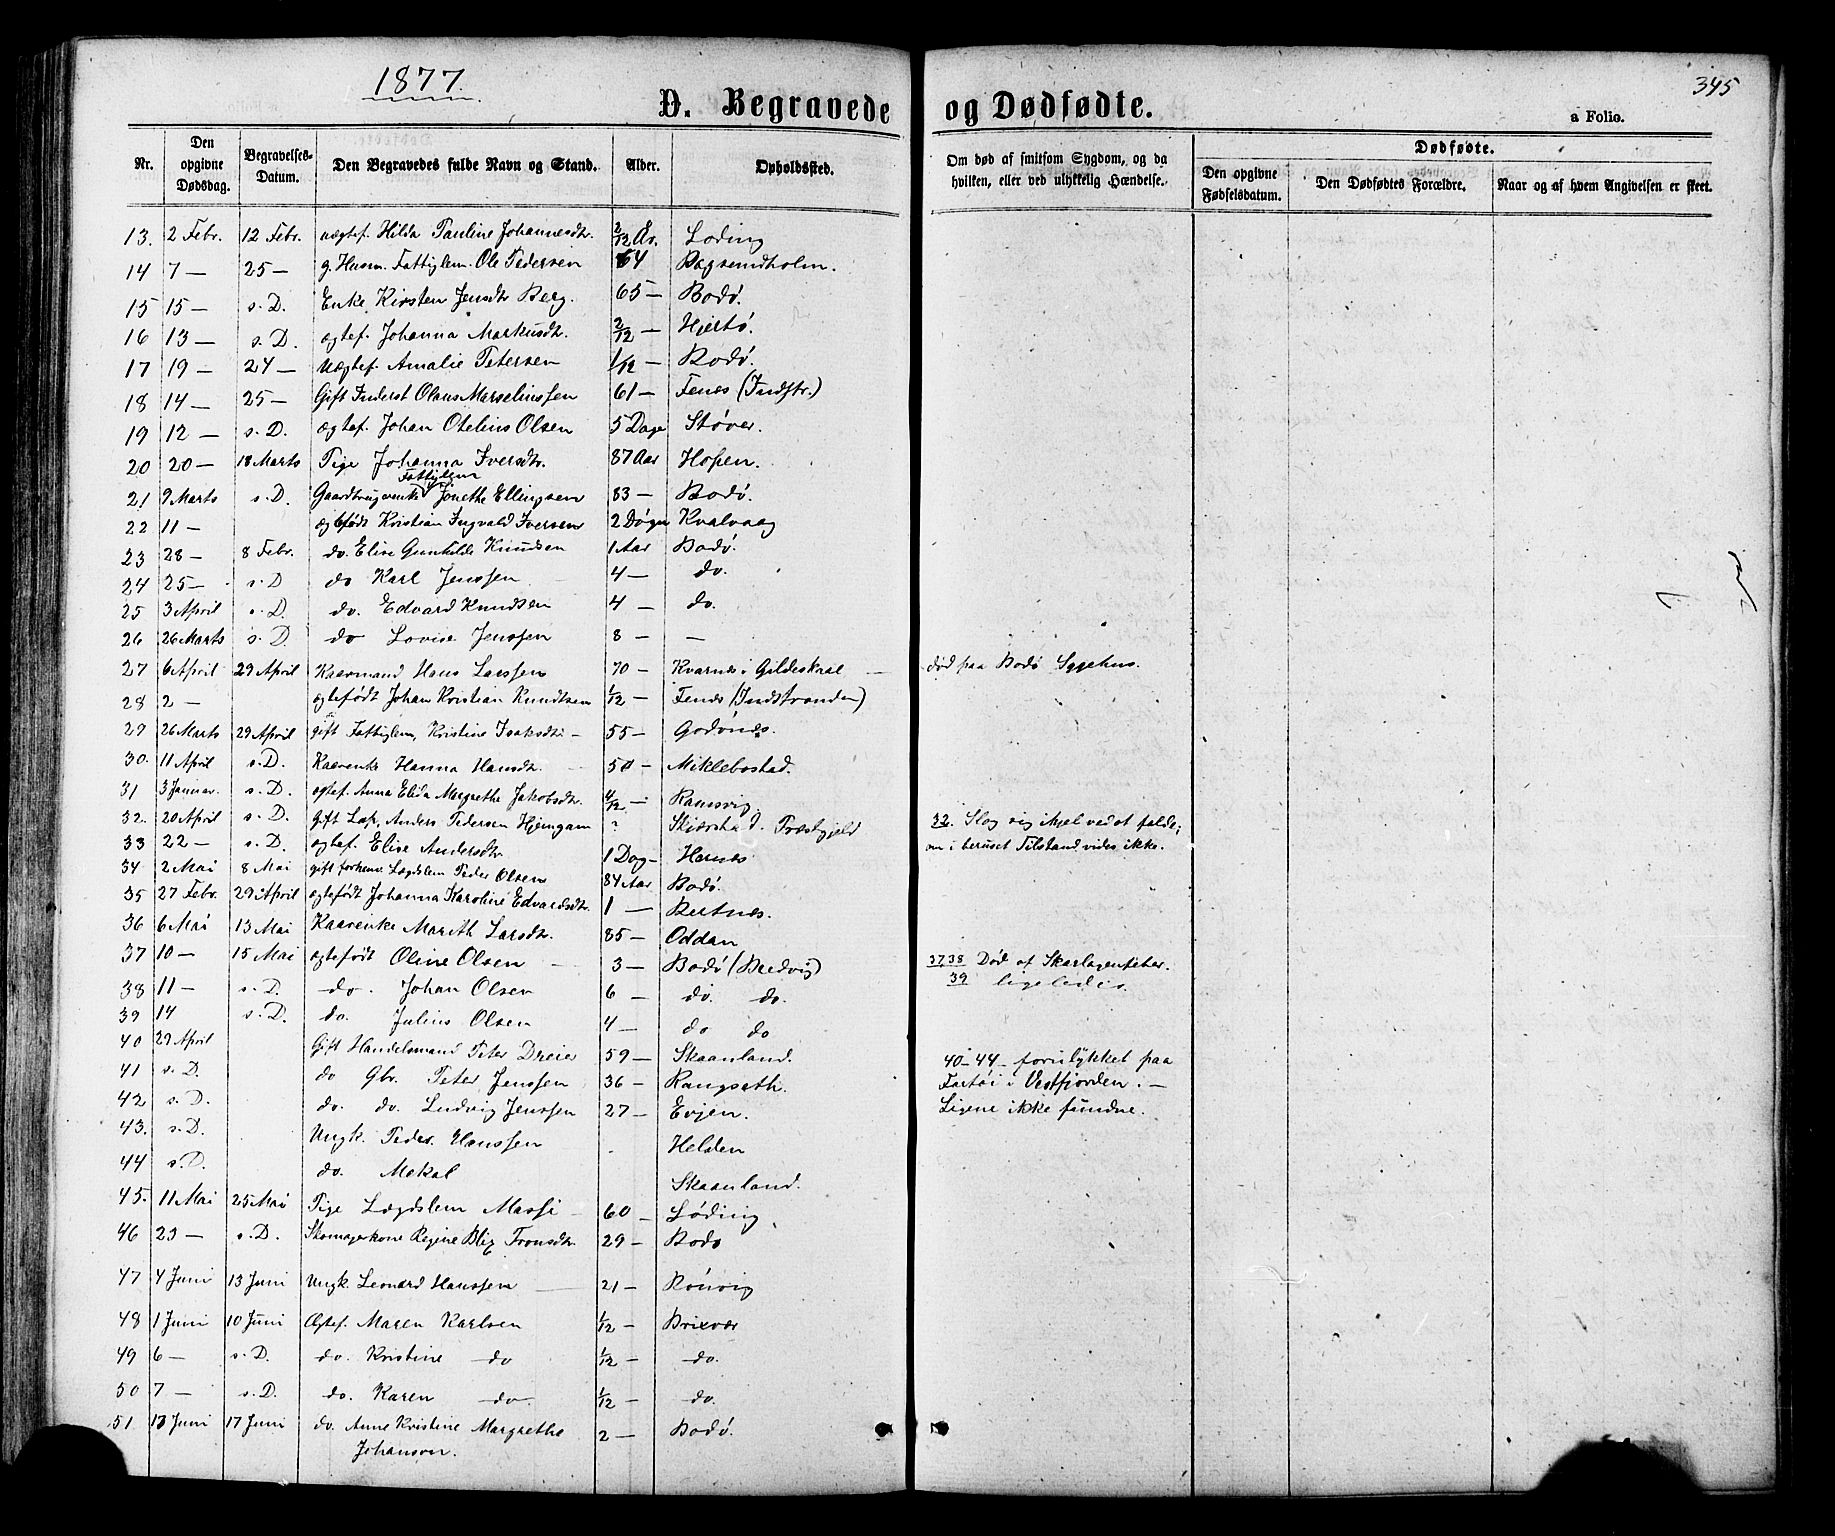 1877.
345
D. Begravede og Dødfødte.
a Folio.
Nr. | Den opgivne Dødsdag. | Begravelses-Datum. | Den Begravedes fulde Navn og Stand. | Alder. | Opholdssted. | Om død af smitsom Sygdom, og da hvilken, eller ved ulykkelig Hændelse. | Dødfødte. Den opgivne Fødselsdatum. | Den Dødfødtes Forældre. | Naar og af hvem Angivelsen er skeet.
13. 2 Febr. 12 Febr. uægtef. Hilda Pauline Johannesdtr. 2/12 Ar. Loding
14 7 — 25 — g. Husm. Fattiglem. Ole Pedersen 64 Bagsundholm.
15 15 — s. D. Enke Kirsten Jensdtr Berg. 65 — Bodø.
16 13 — s. D. ægtef. Johanna Markusdtr. 2/12 — Hjertø.
17 19 — 24 — Uægtef. Amalie Petersen 1/12 — Bodø.
18 14 — 25 — Gift Inderst Olaus Marselinssen 61 — Fenes (Indstr.)
19 12 — s. D. ægtef. Johan Otelius Olsen 5 Dage Støver.
20 20 — 18 Marts Pige Johanna Iversdtr. 87 Aar Hopen.
21 9 Marts s. D. Gaardbrugerenke Fattiglem Jonetha Ellingsen 83 — Bodø.
22 11 — ægtefødt Kristian Ingvald Iversen 2 Døgn Kvalvaag
23 28 — 8 Febr. do. Elise Gunhilde Knudsen 1 Aar Bodø.
24 25 — s. D do Karl Jenssen 4 — do.
25 3 April s. D. do. Edvard Knudsen 4 — do.
26 26 Marts s. D. do Lovise Jenssen 8 — —
27 6 April 29 April Kaarmand Hans Larssen 70 — Kvarnes i Gildeskaal — død paa Bodø Sygehus.
28 2 — ægtefødt Johan Kristian Knudtsen 1/12 — Fenes (Indstranden)
29 26 Marts 29 April gift Fattiglem, Kristine Isaksdtr — 55 — Godønes.
30. 11 April s. D. Kaarenke Hanna Hansdtr. 50 — Miklebostad.
31 3 Januar. s. D. ægtef. Anna Elida Margrethe Jakobsdtr. 4/12 — Ramsvig
32. 20 April s. D. gift Lap, Anders Pedersen Hjemgam ? Skjerstad Præstgjeld 32. Slog sig ihjel ved at falde;
33 22 — s. D. ægtef. Elise Andersdtr. 1 Dag — Hernes om i beruset Tilstand vides ikke.
34 2 Mai 8 Mai gift forhenv. Lægdslem Peder Olsen 84 Aar Bodø.
35 27 Febr. 29 April ægtefødt Johanna Karoline Edvardsdtr. 1 — Bertnes.
36 6 Mai 13 Mai Kaarenke Marith Larsdtr. 85 — Oddan
37 10 — 15 Mai ægtefødt Oline Olsen — 3 — Bodø (Bredvig) 37.38 Død af Skarlagensfeber.
38 11 — s. D. do. Johan Olsen 6 do. do. 39 ligeledes.
39 14 s. D. do. Julius Olsen 4 — do do
40 29 April Gift Handelsmand Peter Dreier 59 — Skaanland. 40–44 – forulykket paa
41 s. D. do Gbr. Peter Jenssen 36 — Rangsæth. Fartøi i Vestfjorden. —
42 s. D. do. do. Ludvig Jenssen 27 — Evjen. Ligene ikke fundne.
43. s. D. Ungk. Peder. Hanssen Helden
44 s. D. do. Mekal Skaanland.
45. 11 Mai 25 Mai Pige Lægdslem Massi — 60 — Løding
46 23 — s. D. Skomagerkone Regine Blix Tronsdtr 29 — Bodø
47 4 Juni 13 Juni Ungk. Leonard Hanssen — 21 — Rønvig
48 1 Juni 10 Juni Ægtef. Maren Karlsen 1/12 — Brixvær
49 6 — s. D. do. Kristine do 1/12 — do.
50 7 — s. D. do. Karen do. 1/12 — do.
51 13 Juni 17 Juni do. Anne Kristine Margrethe 2 — Bodø.
Johanson.